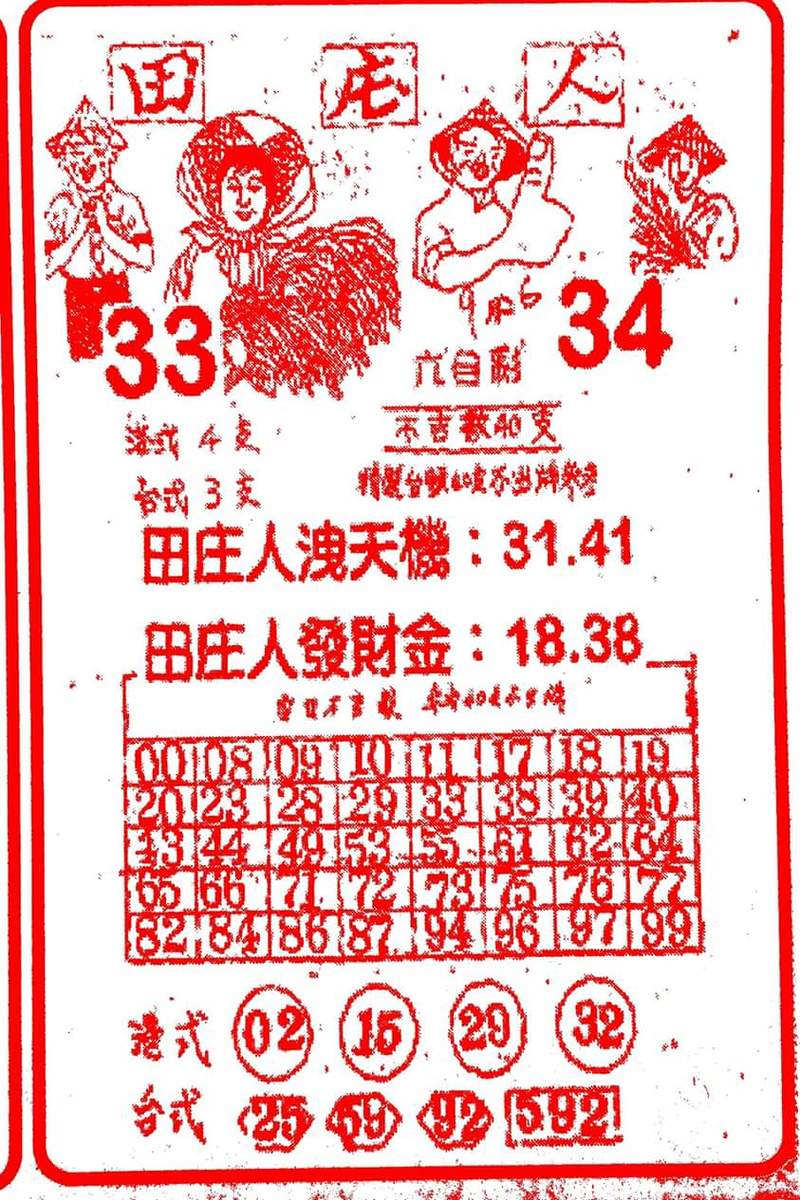 田 庄 人
33
34
六合彩
港式 4 支
不吉數40支
台式 3 支
田庄人洩天機：31.41
田庄人發財金：18.38
00 08 09 10 11 17 18 19
20 23 28 29 33 38 39 40
43 44 49 53 55 61 62 64
65 66 71 72 73 75 76 77
82 84 86 87 94 96 97 99
港式 02 15 29 32
台式 25 59 92 592